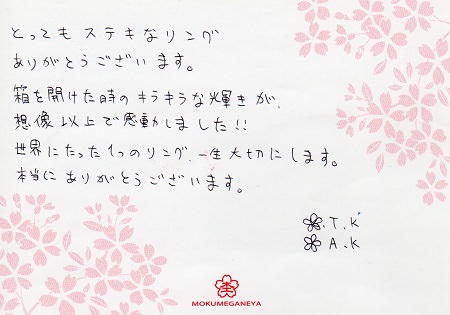 とってもステキなリング
ありがとうございます。
箱を開けた時のキラキラな輝きが、
想像以上で感動しました!!
世界にたった1つのリング、一生大切にします。
本当にありがとうございます。
T.K
A.K
MOKUMEGANEYA